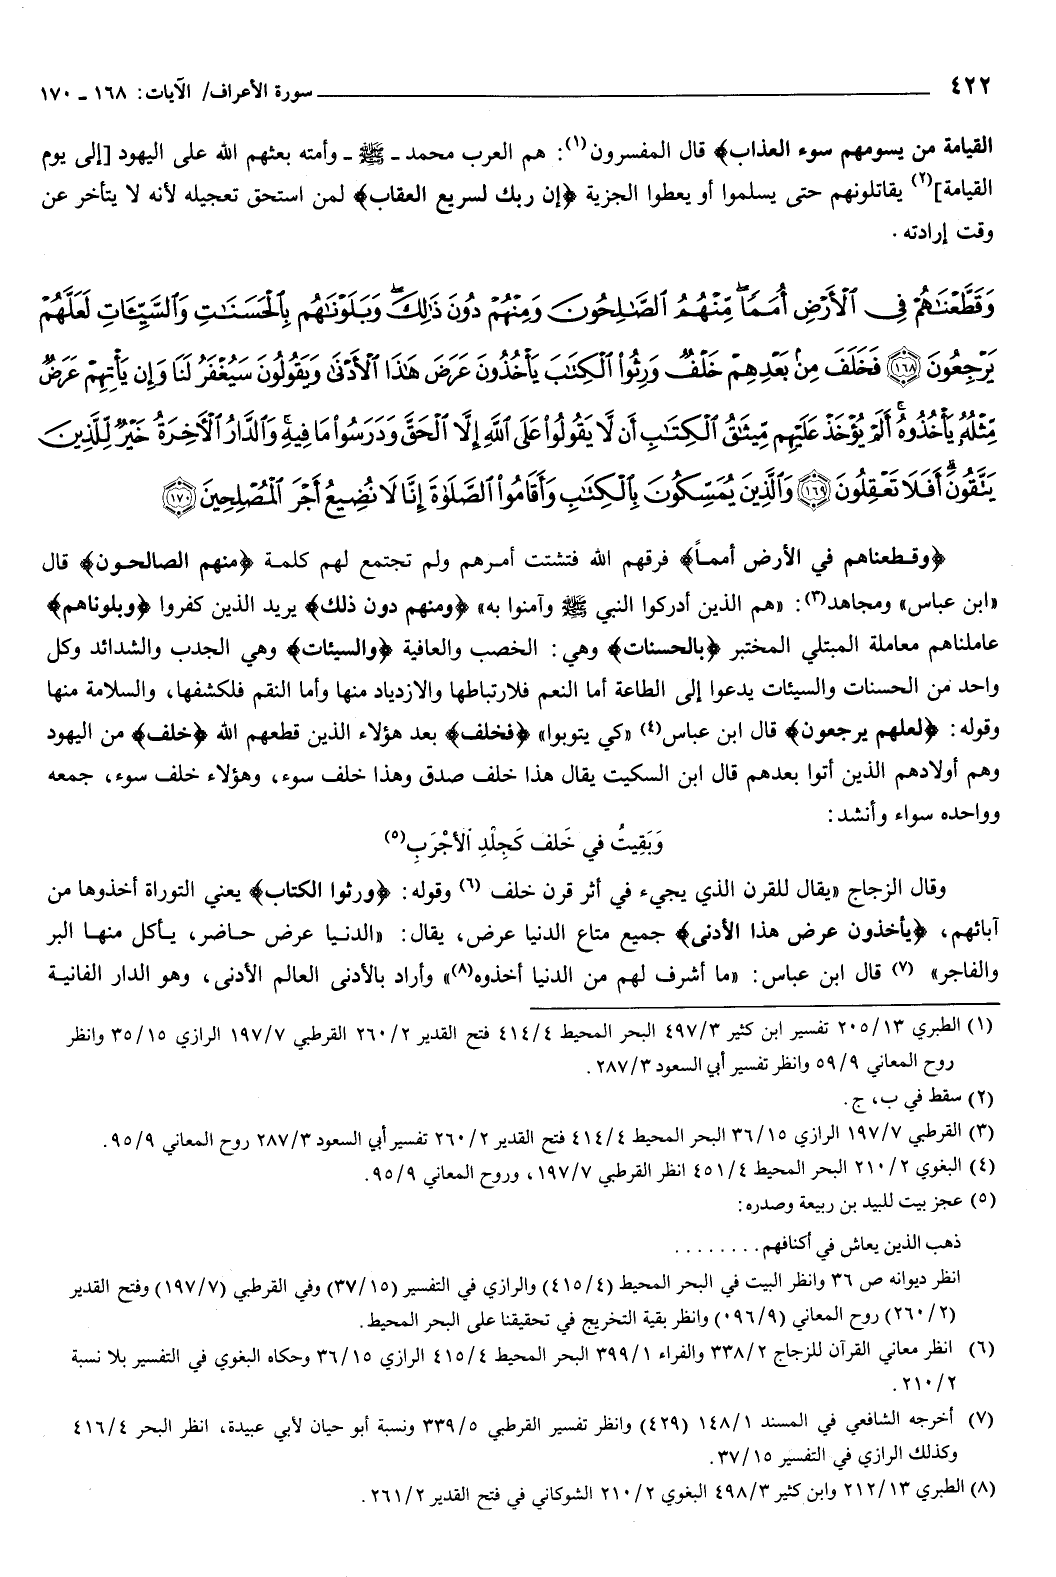 ٤٢٢ ــــــ سورة الأعراف/ الآيات: ١٦٨ ـ ١٧٠
القيامة من يسومهم سوء العذاب﴾ قال المفسرون(١): هم العرب محمد ـ ﷺ ـ وأمته بعثهم الله على اليهود [إلى يوم
القيامة](٢) يقاتلونهم حتى يسلموا أو يعطوا الجزية ﴿إن ربك لسريع العقاب﴾ لمن استحق تعجيله لأنه لا يتأخر عن
وقت إرادته.
وَقَطَّعْنَاهُمْ فِي الْأَرْضِ أُمَمًا مِّنْهُمُ الصَّالِحُونَ وَمِنْهُمْ دُونَ ذَٰلِكَ وَبَلَوْنَاهُم بِالْحَسَنَاتِ وَالسَّيِّئَاتِ لَعَلَّهُمْ
يَرْجِعُونَ ﴿١٦٨﴾ فَخَلَفَ مِن بَعْدِهِمْ خَلْفٌ وَرِثُوا الْكِتَابَ يَأْخُذُونَ عَرَضَ هَٰذَا الْأَدْنَىٰ وَيَقُولُونَ سَيُغْفَرُ لَنَا وَإِن يَأْتِهِمْ عَرَضٌ
مِّثْلُهُ يَأْخُذُوهُ أَلَمْ يُؤْخَذْ عَلَيْهِم مِّيثَاقُ الْكِتَابِ أَن لَّا يَقُولُوا عَلَى اللَّهِ إِلَّا الْحَقَّ وَدَرَسُوا مَا فِيهِ وَالدَّارُ الْآخِرَةُ خَيْرٌ لِّلَّذِينَ
يَتَّقُونَ أَفَلَا تَعْقِلُونَ ﴿١٦٩﴾ وَالَّذِينَ يُمَسِّكُونَ بِالْكِتَابِ وَأَقَامُوا الصَّلَاةَ إِنَّا لَا نُضِيعُ أَجْرَ الْمُصْلِحِينَ ﴿١٧٠﴾
﴿وقطعناهم في الأرض أمماً﴾ فرقهم الله فتشتت أمرهم ولم تجتمع لهم كلمة ﴿منهم الصالحون﴾ قال
«ابن عباس» ومجاهد(٣): «هم الذين أدركوا النبي ﷺ وآمنوا به» ﴿ومنهم دون ذلك﴾ يريد الذين كفروا ﴿وبلوناهم﴾
عاملناهم معاملة المبتلي المختبر ﴿بالحسنات﴾ وهي: الخصب والعافية ﴿والسيئات﴾ وهي الجدب والشدائد وكل
واحد من الحسنات والسيئات يدعوا إلى الطاعة أما النعم فلارتباطها والازدياد منها وأما النقم فلكشفها، والسلامة منها
وقوله: ﴿لعلهم يرجعون﴾ قال ابن عباس(٤) «كي يتوبوا» ﴿فخلف﴾ بعد هؤلاء الذين قطعهم الله ﴿خلف﴾ من اليهود
وهم أولادهم الذين أتوا بعدهم قال ابن السكيت يقال هذا خلف صدق وهذا خلف سوء، وهؤلاء خلف سوء، جمعه
وواحده سواء وأنشد:
وَبَقِيتُ في خَلف كَجِلْدِ الأجْرَبِ(٥)
وقال الزجاج «يقال للقرن الذي يجيء في أثر قرن خلف (٦) وقوله: ﴿ورثوا الكتاب﴾ يعني التوراة أخذوها من
آبائهم، ﴿يأخذون عرض هذا الأدنى﴾ جميع متاع الدنيا عرض، يقال: «الدنيا عرض حاضر، يأكل منها البر
والفاجر» (٧) قال ابن عباس: «ما أشرف لهم من الدنيا أخذوه(٨)» وأراد بالأدنى العالم الأدنى، وهو الدار الفانية
(١) الطبري ٢٠٥/١٣ تفسير ابن كثير ٤٩٧/٣ البحر المحيط ٤١٤/٤ فتح القدير ٢٦٠/٢ القرطبي ١٩٧/٧ الرازي ٣٥/١٥ وانظر
روح المعاني ٥٩/٩ وانظر تفسير أبي السعود ٢٨٧/٣.
(٢) سقط في ب، ج.
(٣) القرطبي ١٩٧/٧ الرازي ٣٦/١٥ البحر المحيط ٤١٤/٤ فتح القدير ٢٦٠/٢ تفسير أبي السعود ٢٨٧/٣ روح المعاني ٩٥/٩.
(٤) البغوي ٢١٠/٢ البحر المحيط ٤٥١/٤ انظر القرطبي ١٩٧/٧، وروح المعاني ٩٥/٩.
(٥) عجز بيت للبيد بن ربيعة وصدره:
ذهب الذين يعاش في أكنافهم........
انظر ديوانه ص ٣٦ وانظر البيت في البحر المحيط (٤١٥/٤) والرازي في التفسير (٣٧/١٥) وفي القرطبي (١٩٧/٧) وفتح القدير
(٢٦٠/٢) روح المعاني (٠٩٦/٩) وانظر بقية التخريج في تحقيقنا على البحر المحيط.
(٦) انظر معاني القرآن للزجاج ٣٣٨/٢ والفراء ٣٩٩/١ البحر المحيط ٤١٥/٤ الرازي ٣٦/١٥ وحكاه البغوي في التفسير بلا نسبة
٢١٠/٢.
(٧) أخرجه الشافعي في المسند ١٤٨/١ (٤٢٩) وانظر تفسير القرطبي ٣٣٩/٥ ونسبة أبو حيان لأبي عبيدة، انظر البحر ٤١٦/٤
وكذلك الرازي في التفسير ٣٧/١٥.
(٨) الطبري ٢١٢/١٣ وابن كثير ٤٩٨/٣ البغوي ٢١٠/٢ الشوكاني في فتح القدير ٢٦١/٢.